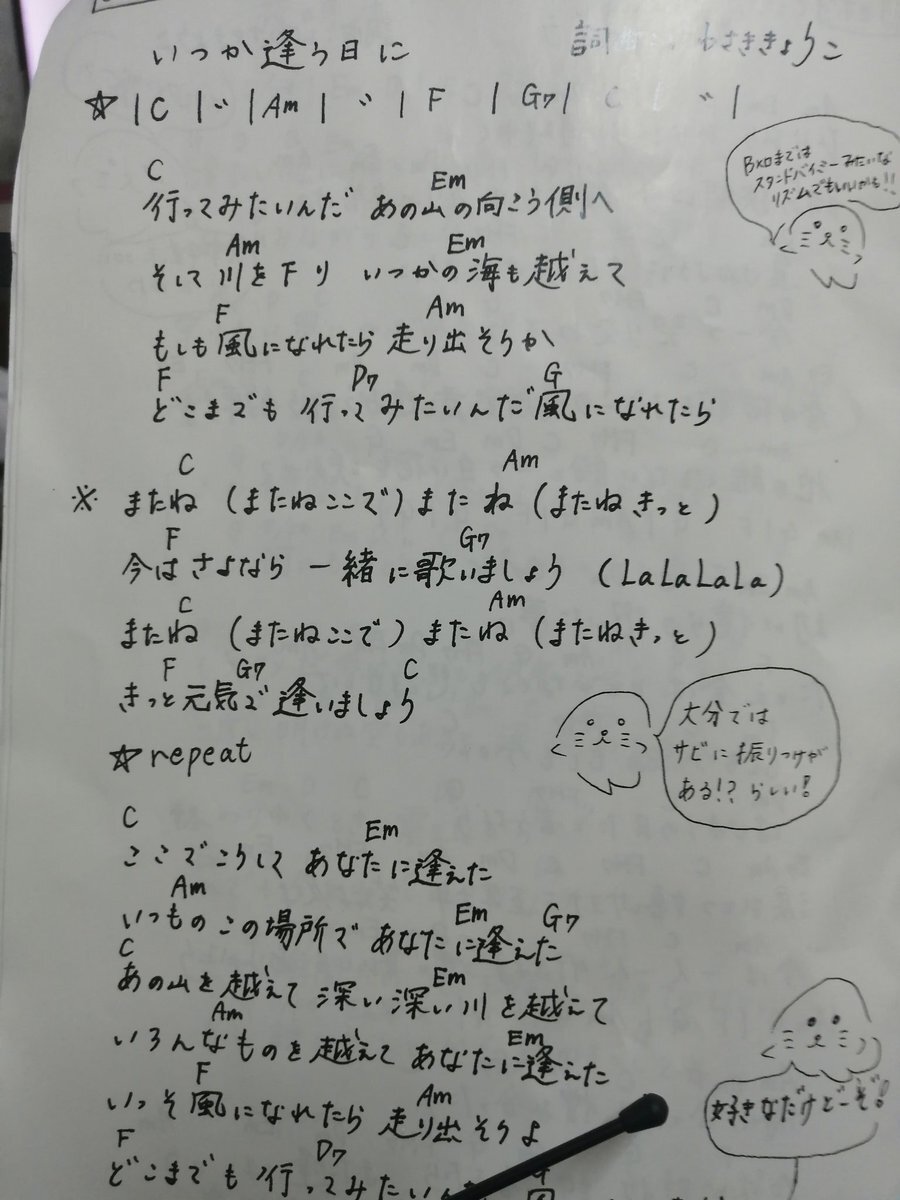 いつか逢う日に
詞 わさききょうこ
☆ | C | 〃 | Am | 〃 | F | G7 | C | 〃 |
Bメロまでは
スタンドバイミーみたいな
リズムでもいいかも!!
C Em
行ってみたいんだ あの山の向こう側へ
Am Em
そして川を下り いつかの海も越えて
F Am
もしも風になれたら 走り出そうか
F D7 G
どこまでも 行ってみたいんだ風になれたら
C Am
※ またね (またねここで) またね (またねきっと)
F G7
今はさよなら 一緒に歌いましょう (LaLaLaLa)
C Am
またね (またねここで) またね (またねきっと)
F G7 C
きっと元気で逢いましょう
大分では
サビに振りつけが
ある!? らしい!
☆repeat
C Em
ここでこうして あなたに逢えた
Am Em G7
いつものこの場所で あなたに逢えた
C Em
あの山を越えて 深い深い川を越えて
Am Em
いろんなものを越えて あなたに逢えた
F Am
いっそ風になれたら 走り出そうよ
好きなだけどーぞ!
F D7 G
どこまでも 行ってみたいん